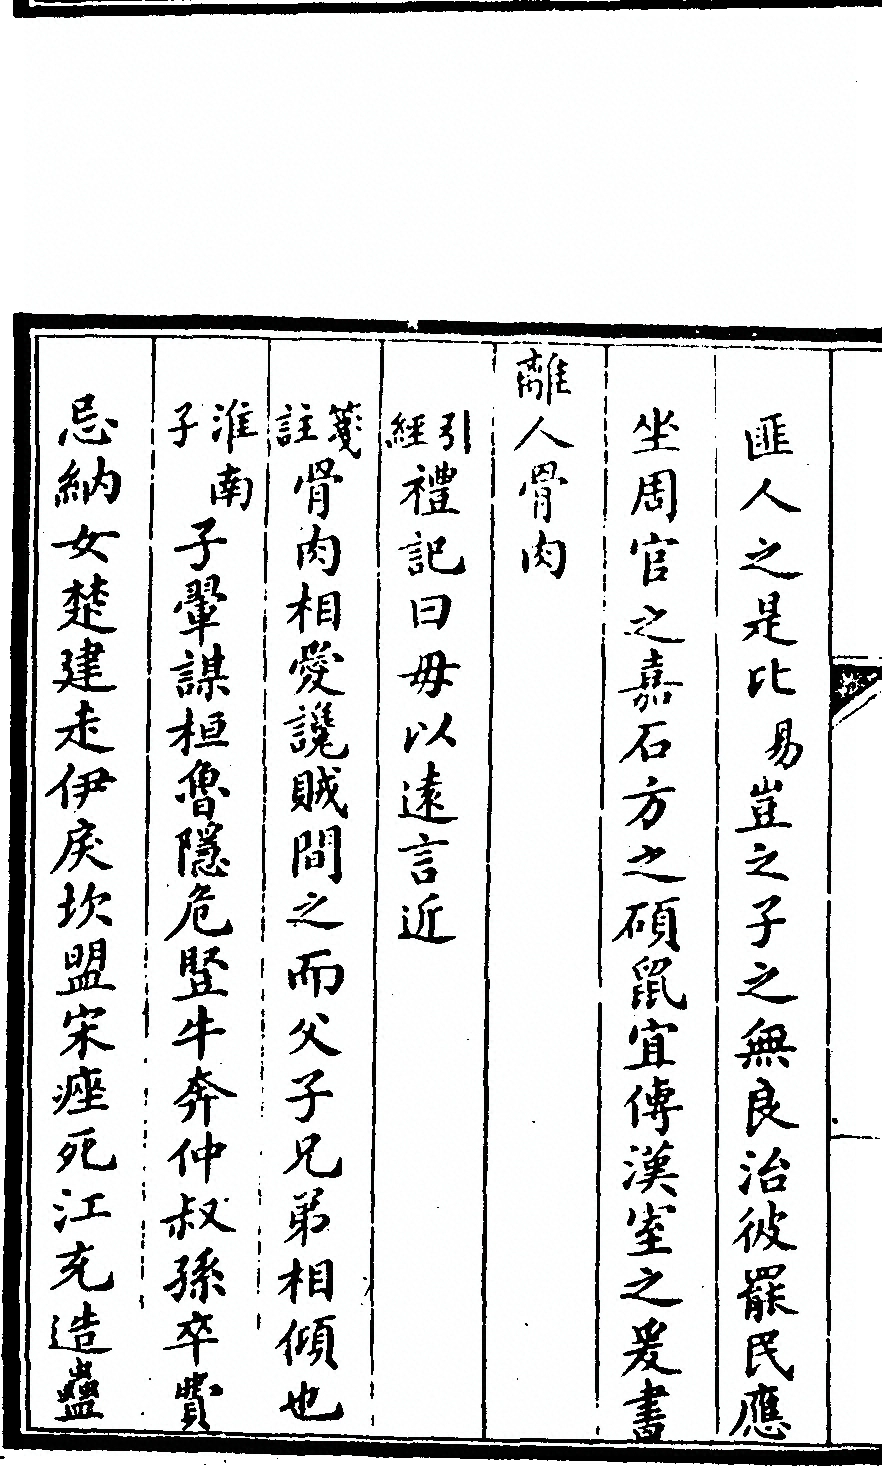 匪人之是比易豈之子之無良治彼罷民應
坐周官之嘉石方之碩鼠宜傳漢室之爰書
離人骨肉
引經禮記曰毋以遠言近
箋註骨肉相愛讒賊間之而父子兄弟相傾也
淮南子子翬謀桓魯隱危豎牛奔仲叔孫卒費
忌納女楚建走伊戾坎盟宋痤死江充造蠱